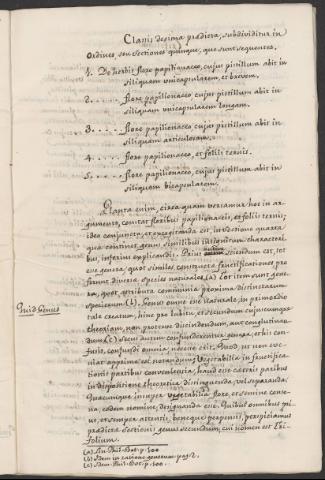 Classis decima prædicta, subdividitur in
ordines, seu sectiones quinque, quæ sunt sequentes.
1. De herbis flore papilionaceo, cujus pistillum abit in
siliquam unicapsularem, et brevem.
2. . . . . . flore papilionaceo cujus pistillum abit in
siliquam unicapsularem longam.
3. . . . . . flore papilionaceo, cujus pistillum abit in
siliquam articulosam.
4. . . . . . flore papilionaceo, et foliis ternis.
5. . . . . . flore papilionaceo, cujus pistillum abit in
siliquam bicapsularem.
Planta enim, circa quam versamur hoc in ar-
gumento, constat floribus papilionaceis, et foliis ternis;
ideo conjuncta, et in sectione quarta
qua continet genus similibus insignitum characteri-
bus, inferius explicandis. sciendum est, tot
esse genera, quot similes
diversæ species naturales (a) tot item sunt gene-
ra, quot attributa communia proxima distinctarum
specierum (b) Genus omne est naturale, in primordio
tale creatum, hinc pro lubitu, et secundum cujuscumque
theoriam, non proterve discindendum, aut conglutinan-
dum (c) genera, orbi con-
fuso, confundi omnia, necesse est.
Quid Genus
vegetabilia in fructifica-
tionis partibus convenientia, haud esse cæteris paribus
in dispositione theoretica distinguenda, vel separanda;
vegetabilia flore, et semine conve-
nia, eodem nomine designanda esse. Quibus omnibus pri-
us, et semper attentis, perspiciamus
prædictæ sectionis genus secundum, cui nomen est Tri-
folium.
(a) Lin. Phil. Bot. p. 100
(b) Idem in ratione generum pag. 2.
(c) Idem. Phil. Bot. p. 100.